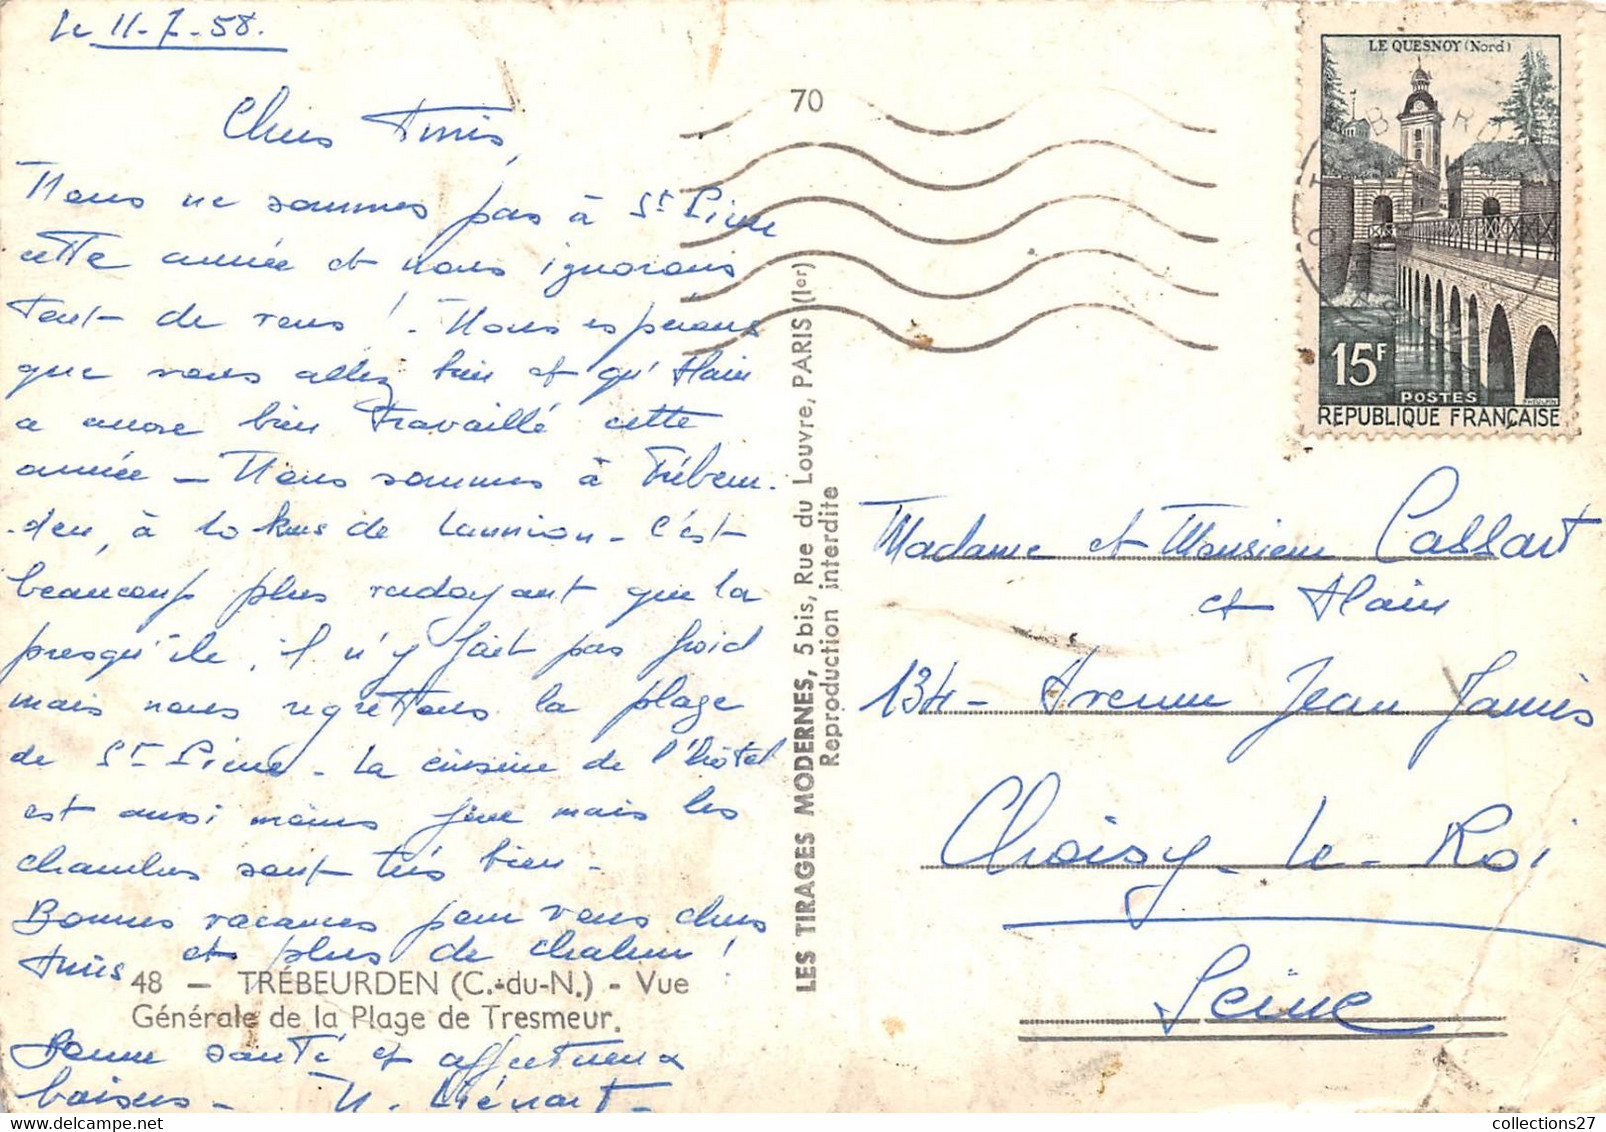 Le 11-7-58.
Chers Amis,
Nous ne sommes pas à St Pierre
cette année et nous ignorons
tout de vous ! Nous espérons
que vous allez bien et qu'Alain
a encore bien travaillé cette
année - Nous sommes à Trébeur-
-den, à 10 kms de Lannion - C'est
beaucoup plus rudoyant que la
presqu'île, il n'y fait pas froid
mais nous regrettons la plage
de St Pierre - La cuisine de l'hôtel
est aussi moins fine mais les
chambres sont très bien -
Bonnes vacances pour vous chers
Amis et plus de chaleur !
48 - TRÉBEURDEN (C.-du-N.) - Vue
Générale de la Plage de Tresmeur.
Bonne santé et affectueux
baisers - N. Liénart -
70
LES TIRAGES MODERNES, 5 bis, Rue du Louvre, PARIS (Ier)
Reproduction interdite
LE QUESNOY (Nord)
15F
POSTES
REPUBLIQUE FRANÇAISE
Madame et Monsieur Cassart
et Alain
134 - Avenue Jean Jaurès
Choisy-le-Roi
Seine
collections27